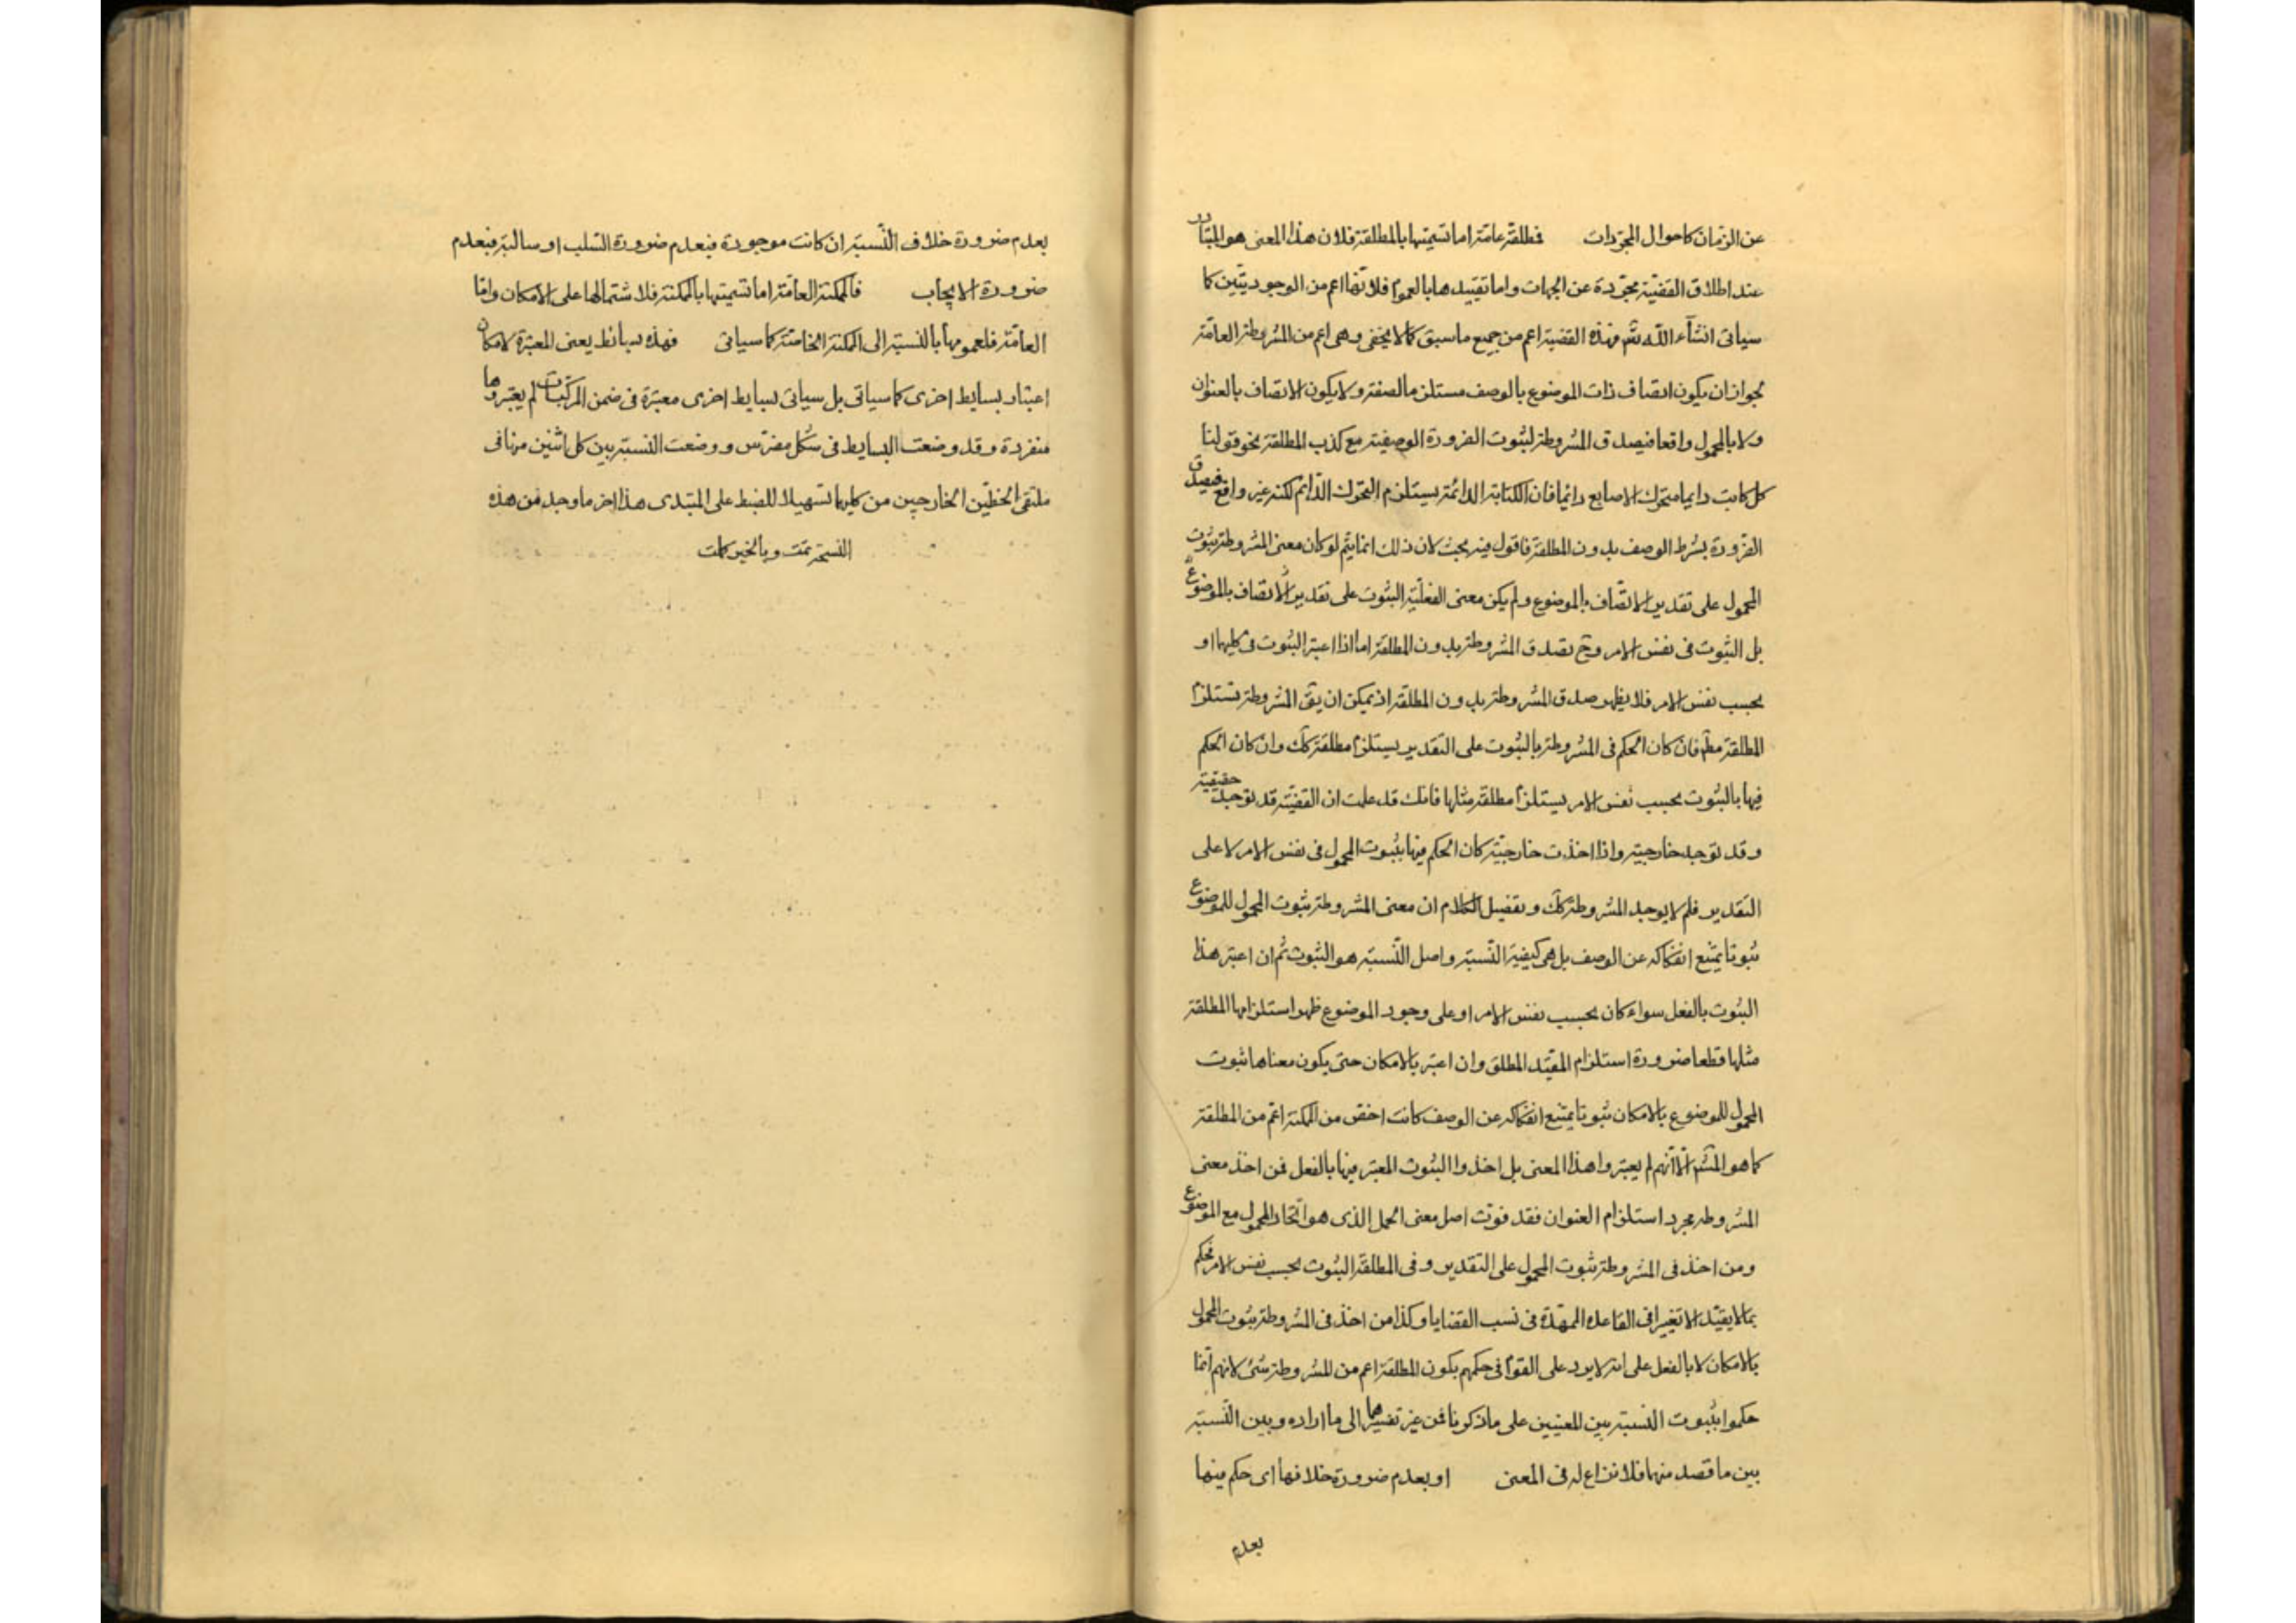 عن الزمان كاحوال المجردات فمطلقة عامة اما تسميتها بالمطلقة فلان هذا المعنى هو المتبادر
عند اطلاق القضية مجردة عن الجهات واما تقييدها بالعموم فلانها اعم من الوجوديتين كما
سياتى انشآء الله تعم وهذه القضية اعم من جميع ما سبق كما لا يخفى وهى اعم من المشروطة العامة
لجواز ان يكون اتصاف ذات الموضوع بالوصف مستلزما لصفة ولا يكون الاتصاف بالعنوان
ولا بالمحمول واقعا فيصدق المشروطة لثبوت الضرورة الوصفية مع كذب المطلقة نحو قولنا
كل كاتب دايما متحرك الاصابع دائما فان الكتابة الدائمة يستلزم التحرك الدائم لكنه غير واقع فيصدق
الضرورة بشرط الوصف بدون المطلقة فاقول فيه بحث لان ذلك انما يتم لو كان معنى المشروطة ثبوت
المحمول على تقدير الاتصاف بالموضوع ولم يكن معنى الفعلية الثبوت على تقدير الاتصاف بالموضوع
بل الثبوت فى نفس الامر وح تصدق المشروطة بدون المطلقة اما اذا اعتبر الثبوت فى كليهما او
بحسب نفس الامر فلا يظهر صدق المشروطة بدون المطلقة اذ يمكن ان يق المشروطة تستلزم
المطلقة مطم فان كان الحكم فى المشروطة بالثبوت على التقدير يستلزم مطلقة كك وان كان الحكم
فيها بالثبوت بحسب نفس الامر يستلزم مطلقة مثلها فانك قد علمت ان القضية قد توجد حقيقية
وقد توجد خارجية واذا اخذت خارجية كان الحكم فيها بثبوت المحمول فى نفس الامر لا على
التقدير فلم لا يوجد المشروطة كك وتفصيل الكلام ان معنى المشروطة ثبوت المحمول للموضوع
ثبوتا يمتنع انفكاكه عن الوصف بل هى كيفية النسبة واصل النسبة هو الثبوت ثم ان اعتبر هذا
الثبوت بالفعل سواء كان بحسب نفس الامر او على وجود الموضوع ظهر استلزامها المطلقة
مثلها قطعا ضرورة استلزام المقيد المطلق وان اعتبر بالامكان حتى يكون معناها ثبوت
المحمول للموضوع بالامكان ثبوتا يمتنع انفكاكه عن الوصف كانت اخص من الممكنة اعم من المطلقة
كما هو المشم الا انهم لم يعتبروا هذا المعنى بل اخذوا الثبوت المعتبر فيها بالفعل فمن اخذ معنى
المشروطه مجرد استلزام العنوان فقد فوت اصل معنى الحمل الذى هو اتحاد المحمول مع الموضوع
ومن اخذ فى المشروطة ثبوت المحمول على التقدير وفى المطلقة الثبوت بحسب نفس الامر فحكم
بما لا يفيد الا تغييرا فى القاعدة الممهدة فى نسب القضايا وكذا من اخذ فى المشروطة ثبوت المحمول
بالامكان لا بالفعل على انه لا يرد على القوم فى حكمهم بكون المطلقة اعم من المشروطة شئ لانهم انما
حكموا بثبوت النسبة بين المعنيين على ما ذكرنا فمن غير تفسيرهما الى ما اراده وبين النسبة
بين ما قصد منهما فلا نزاع له فى المعنى او بعدم ضرورة خلافها اى حكم فيها
بعدم
بعدم ضرورة خلاف النسبة ان كانت موجودة فبعدم ضرورة السلب او سالبة فبعدم
ضرورة الايجاب فالممكنة العامة اما تسميتها بالممكنة فلاشتمالها على الامكان واما
العامة فلعمومها بالنسبة الى الممكنة الخاصة كما سياتى فهذه بسائط يعنى المعتبرة لامكان
اعتبار بسايط اخرى كما سياتى بل سياتى بسايط اخرى معتبرة فى ضمن المركبات لم يعتبروها
منفردة وقد وضعت البسايط فى شكل مضرس ووضعت النسبة بين كل اثنين منها فى
ملتقى الخطين الخارجين من كليهما تسهيلا للضبط على المبتدى هذا اخر ما وجد من هذه
النسخة تمت وبالخير كملت